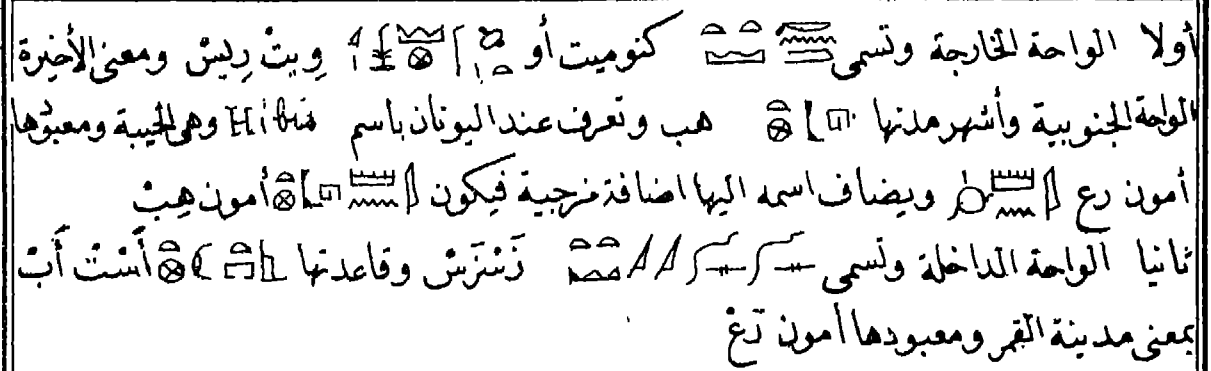 أولا الواحة الخارجة وتسمى كنوميت أو وِيتْ رِيسْ ومعنى الأخيرة
الواحة الجنوبية وأشهر مدنها هب وتعرف عند اليونان باسم Hibis وهى الهيبة ومعبودها
أمون رع ويضاف اسمه اليها اضافة مزجية فيكون أمون هِبْ
ثانيا الواحة الداخلة وتسمى وقاعدتها أَسْتْ أَبْ
بمعنى مدينة القمر ومعبودها أمون رَعْ